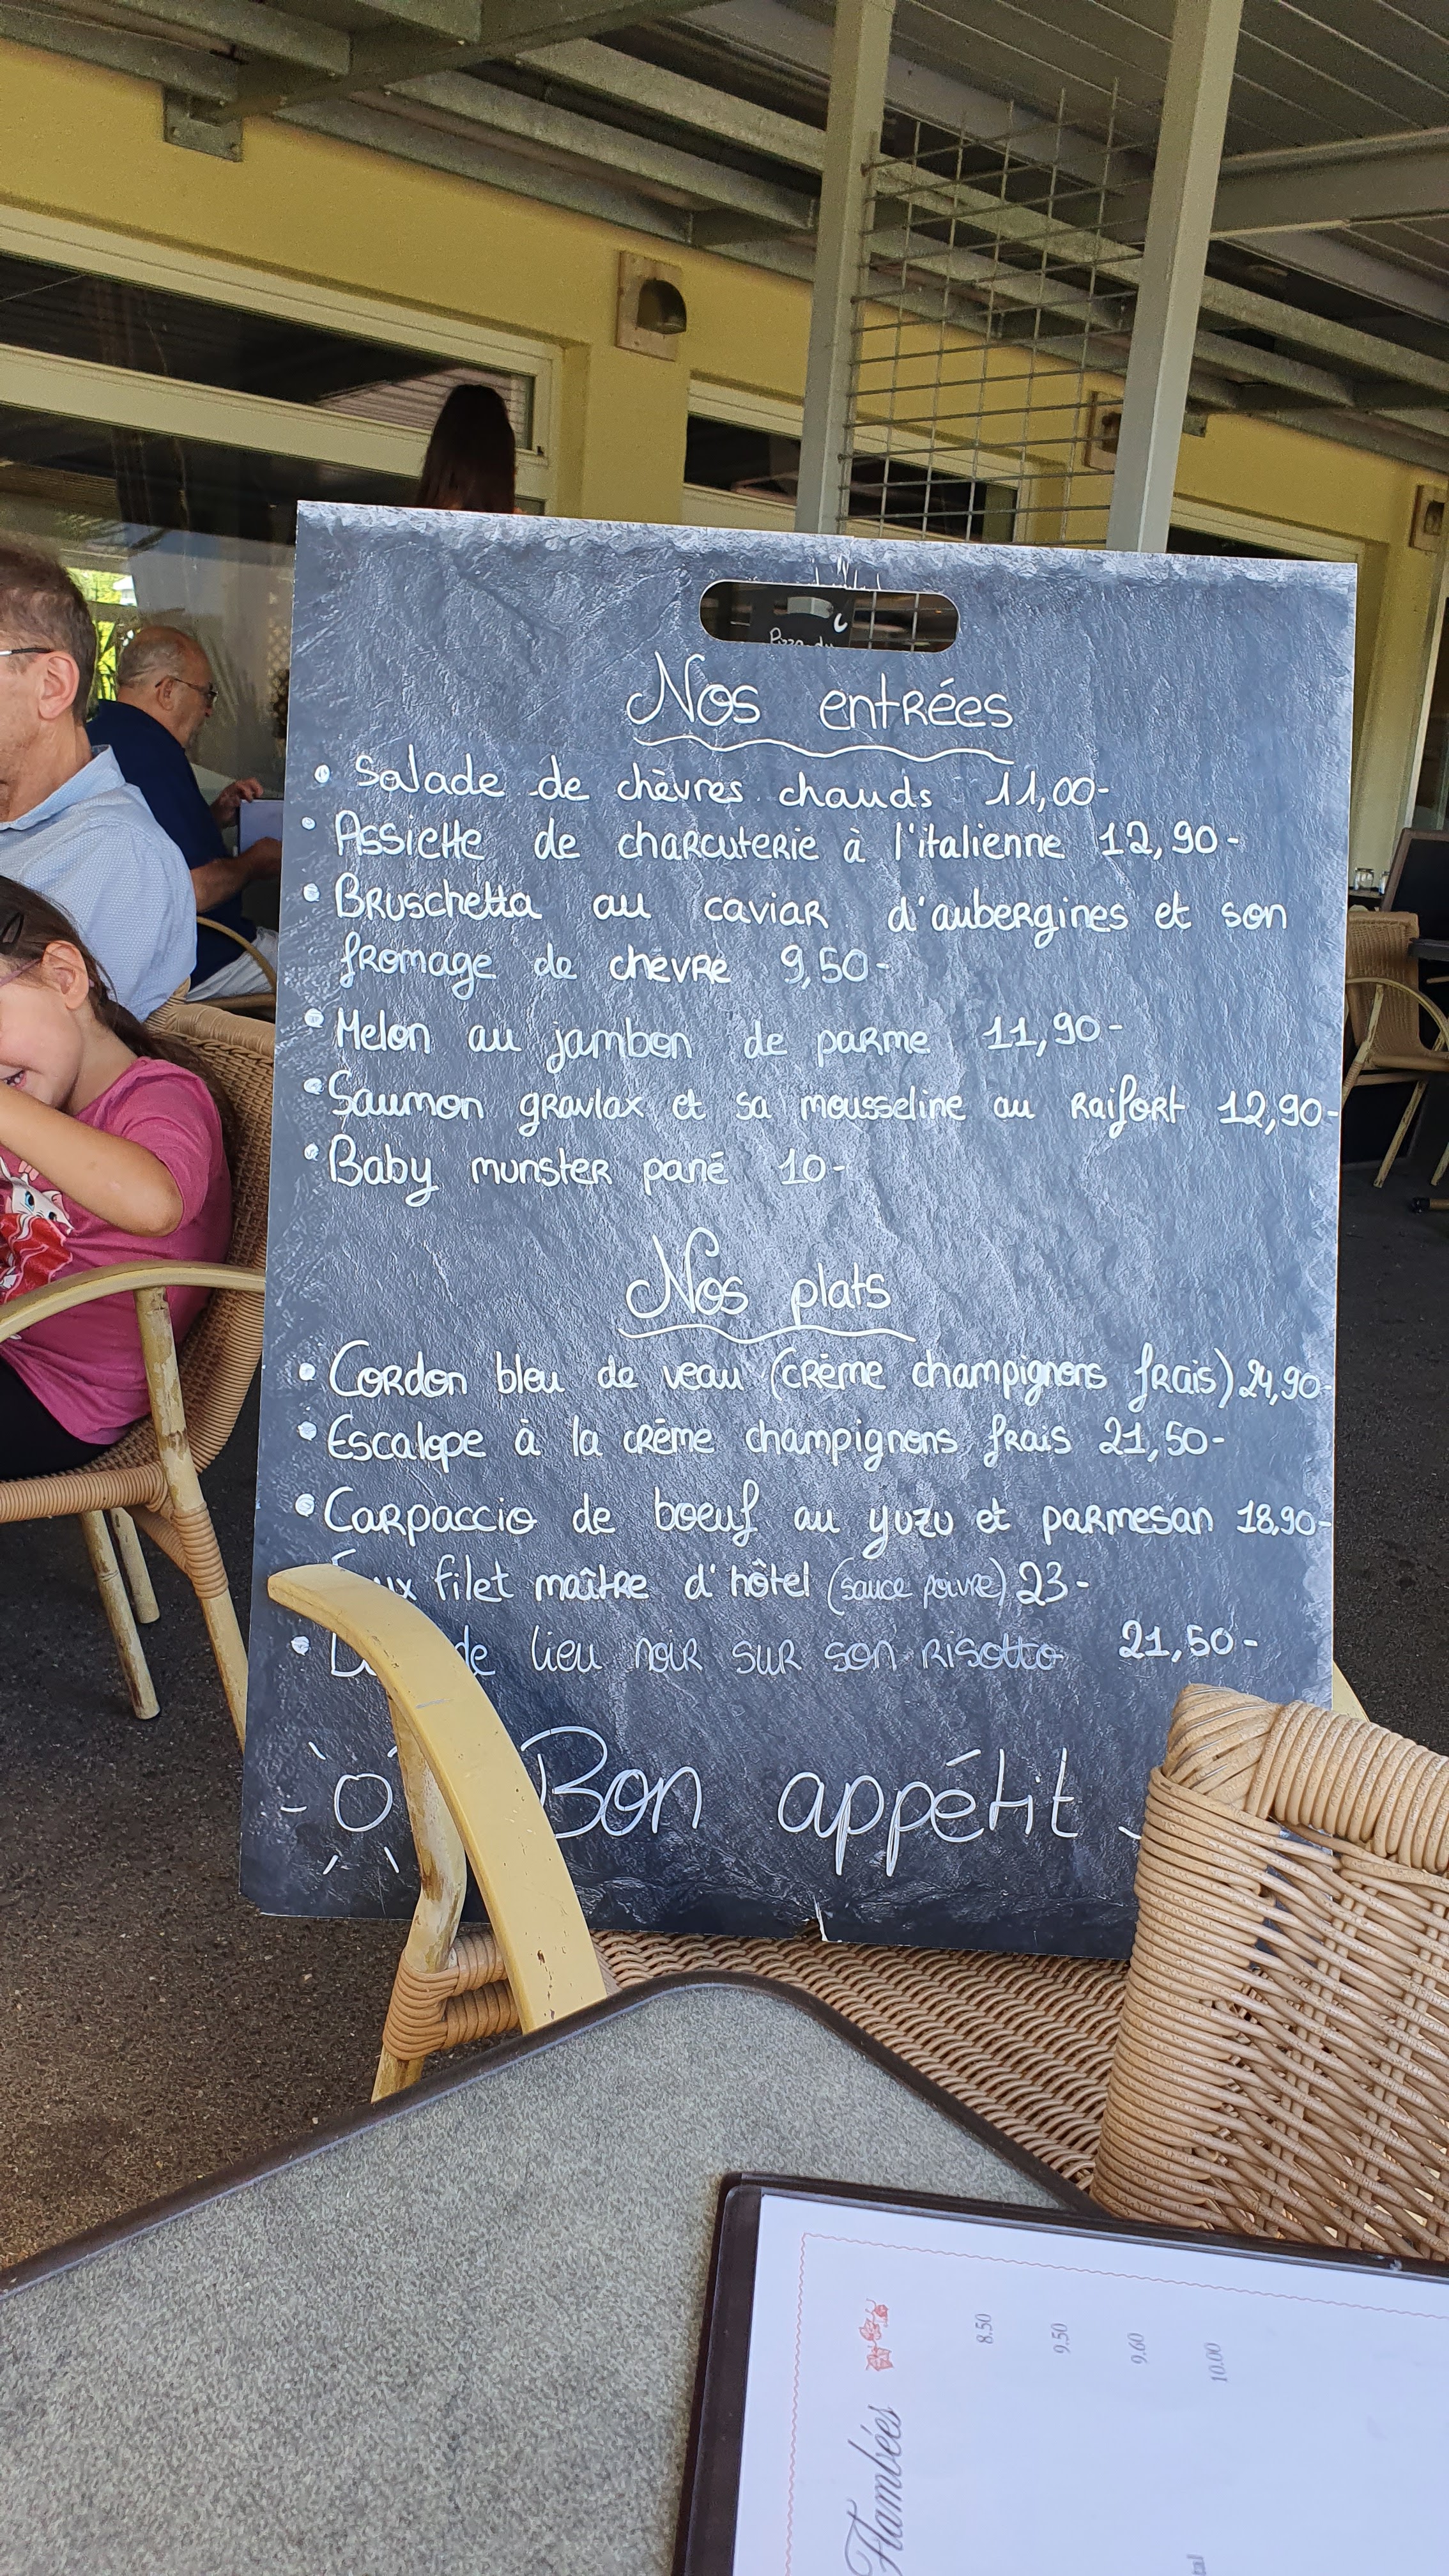 Pizza du
Nos entrées
• Salade de chèvres chauds 11,00-
• Assiette de charcuterie à l'italienne 12,90-
• Bruschetta au caviar d'aubergines et son
fromage de chèvre 9,50-
• Melon au jambon de parme 11,90-
• Saumon gravlax et sa mousseline au raifort 12,90-
• Baby munster pané 10-
Nos plats
• Cordon bleu de veau (crème champignons frais) 24,90-
• Escalope à la crème champignons frais 21,50-
• Carpaccio de boeuf au yuzu et parmesan 18,90-
filet maître d'hôtel (sauce poivre) 23-
• de lieu noir sur son risotto 21,50-
Bon appétit
Flambées
8.50
9.50
9.60
10.00